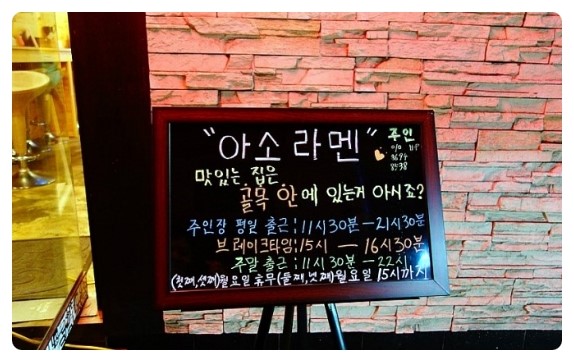 "아소 라멘"
주인
010
9694
8538
맛있는 집은,
골목 안에 있는거 아시죠?
주인장 평일 출근 : 11시30분 - 21시30분
브레이크타임 : 15시 - 16시30분
주말 출근 : 11시30분 - 22시
(첫째,셋째)월요일 휴무(둘째,넷째)월요일 15시까지